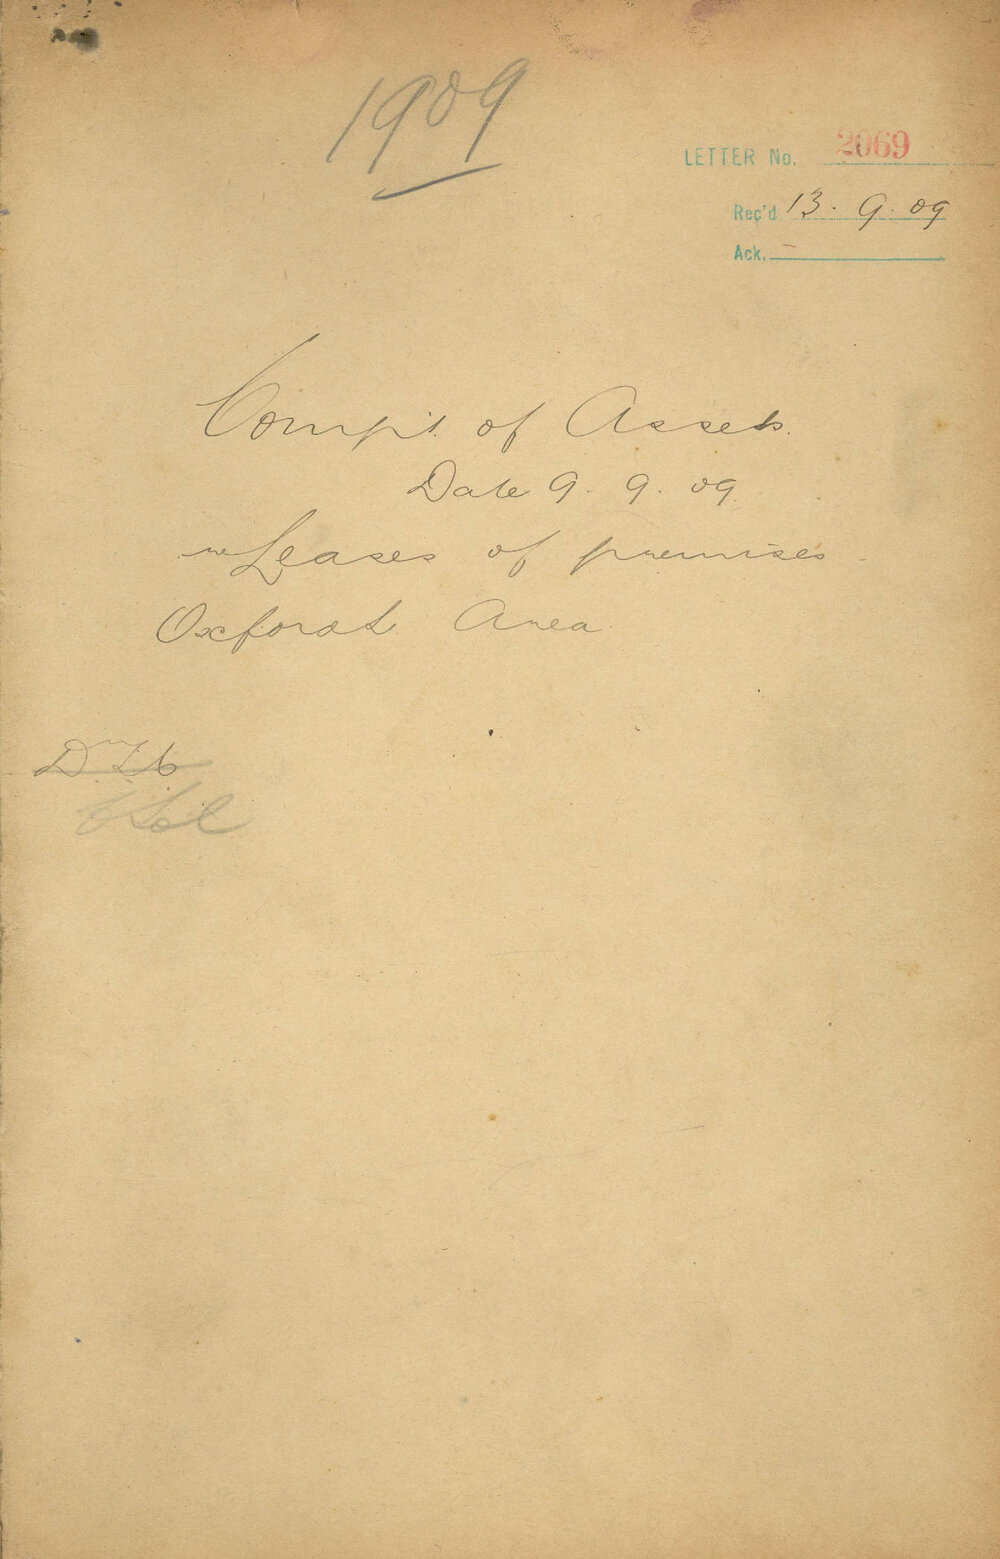 1909
LETTER No. 2069
Rec'd 13. 9. 09
Ack.
Compt. of Assets.
Date 9. 9. 09.
re Leases of premises
Oxford St. Area